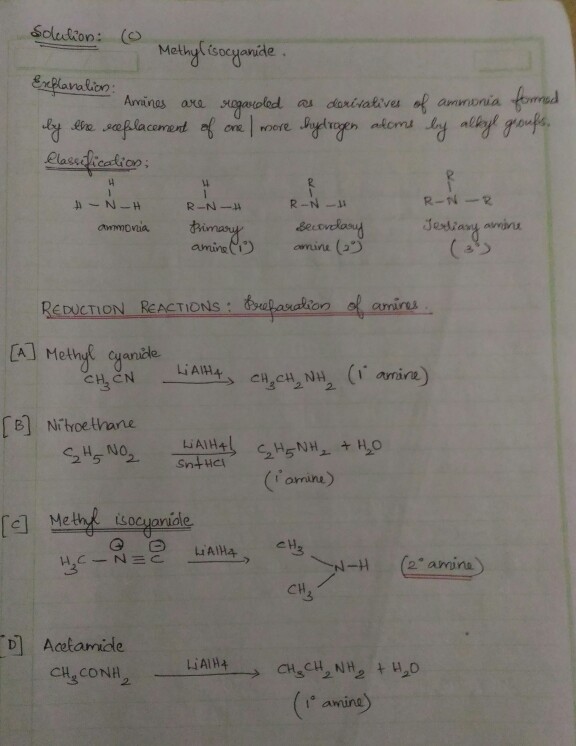 Solution: (C)
Methyl isocyanide.
Explanation:
Amines are regarded as derivatives of ammonia formed
by the replacement of one/more hydrogen atoms by alkyl groups.
Classification:
H H R R
H-N-H R-N-H R-N-H R-N-R
ammonia Primary Secondary Tertiary amine
amine (1°) amine (2°) (3°)
REDUCTION REACTIONS: Preparation of amines.
[A] Methyl cyanide
CH₃CN LiAlH4 → CH₃CH₂NH₂ (1° amine)
[B] Nitroethane
C₂H₅NO₂ LiAlH4/ → C₂H₅NH₂ + H₂O
Sn+HCl
(1° amine)
[C] Methyl isocyanide
H₃C-N⊕≡C⊖ LiAlH4 → CH₃
N-H (2° amine)
CH₃
[D] Acetamide
CH₃CONH₂ LiAlH4 → CH₃CH₂NH₂ + H₂O
(1° amine)